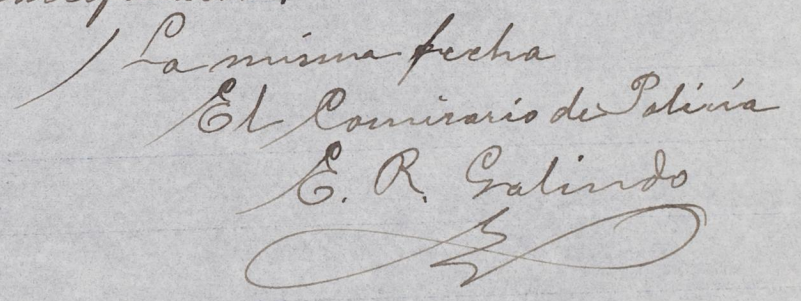 La misma fecha
El Comisario de Policía
E. R. Galindo